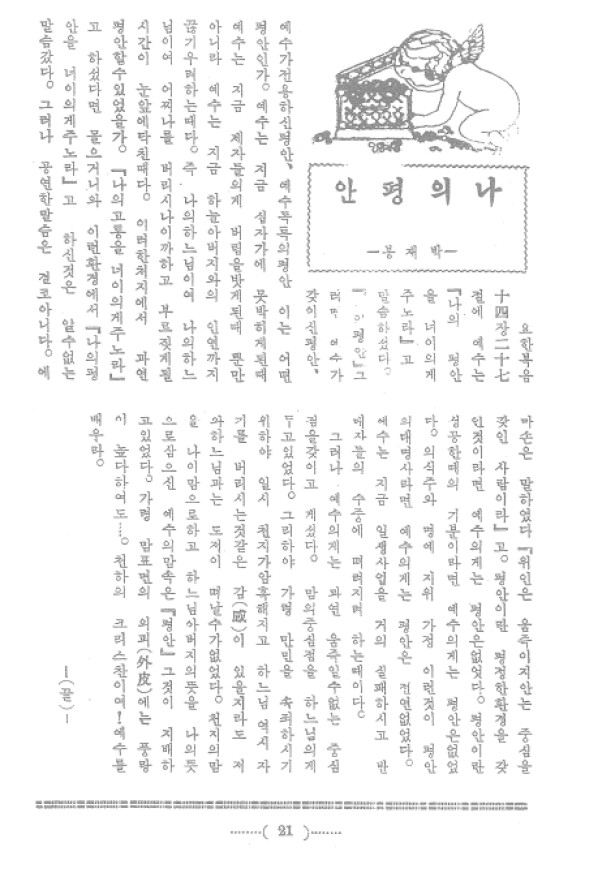 나의평안
―박재봉―
요한복음
十四장二十七
절에 예수는
『나의 평안
을 너이의게
주노라』고
말슴하섯다。
평안』그
러면 예수가
갖이신평안、
예수가전용하신평안、예수독특의평안 이는 어떤
평안인가。예수는 지금 십자가에 못박히게된때
예수는 지금 제자들의게 버림을밧게된때 뿐만
아니라 예수는 지금 하늘아버지와의 인연까지
끊기우려하는때다。즉 나의하느님이여 나의하느
님이여 어찌나를 버리시나이까하고 부르짖게될
시간이 눈앞에닥친때다。 이러한처지에서 과연
평안할수있었을가。『나의고통을 너이의게주노라』
고 하섯다면 몰으거니와 이런환경에서 『나의평
안을 너이의게주노라』고 하신것은 알수없는
말슴같다。그러나 공연한말슴은 결코아니다。에
마손은 말하였다『위인은 움즉이지안는 중심을
갖인 사람이라』고。평안이란 평정한환경을 갖
인것이라면 예수의게는 평안은없엇다。평안이란
성공한때의 기분이라면 예수의게는 평안은없었
다。의식주와 명예 지위 가정 이런것이 평안
의대명사라면 예수의게는 평안은 전연없었다。
예수는 지금 일생사업을 거의 실패하시고 반
대자들의 수중에 떠러지려 하는때이다。
그러나 예수의게는 과연 움즉일수없는 중심
점을갖이고 게섯다。 맘의중심점을 하느님의게
두고있었다。그리하야 가령 만민을 속죄하시기
위하야 일시 천지가암흑해지고 하느님 역시 자
기를 버리시는것같은 감(感)이 있을지라도 저
와하느님과는 도저이 떠날수가없었다。천지의맘
을 나이맘으로하고 하느님아버지의뜻을 나의뜻
으로삼으신 예수의맘속은『평안』그것이 지배하
고있었다。가령 맘표면의 외피(外皮)에는 풍랑
이 높다하여도……。천하의 크리스찬이여!예수를
배우라。
―(끝)―
………( 21 )………